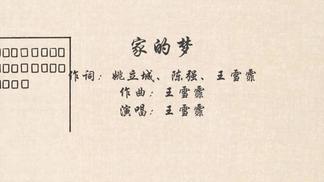 家的梦
作词：姚立城、陈强、王雪霏
作曲：王雪霏
演唱：王雪霏